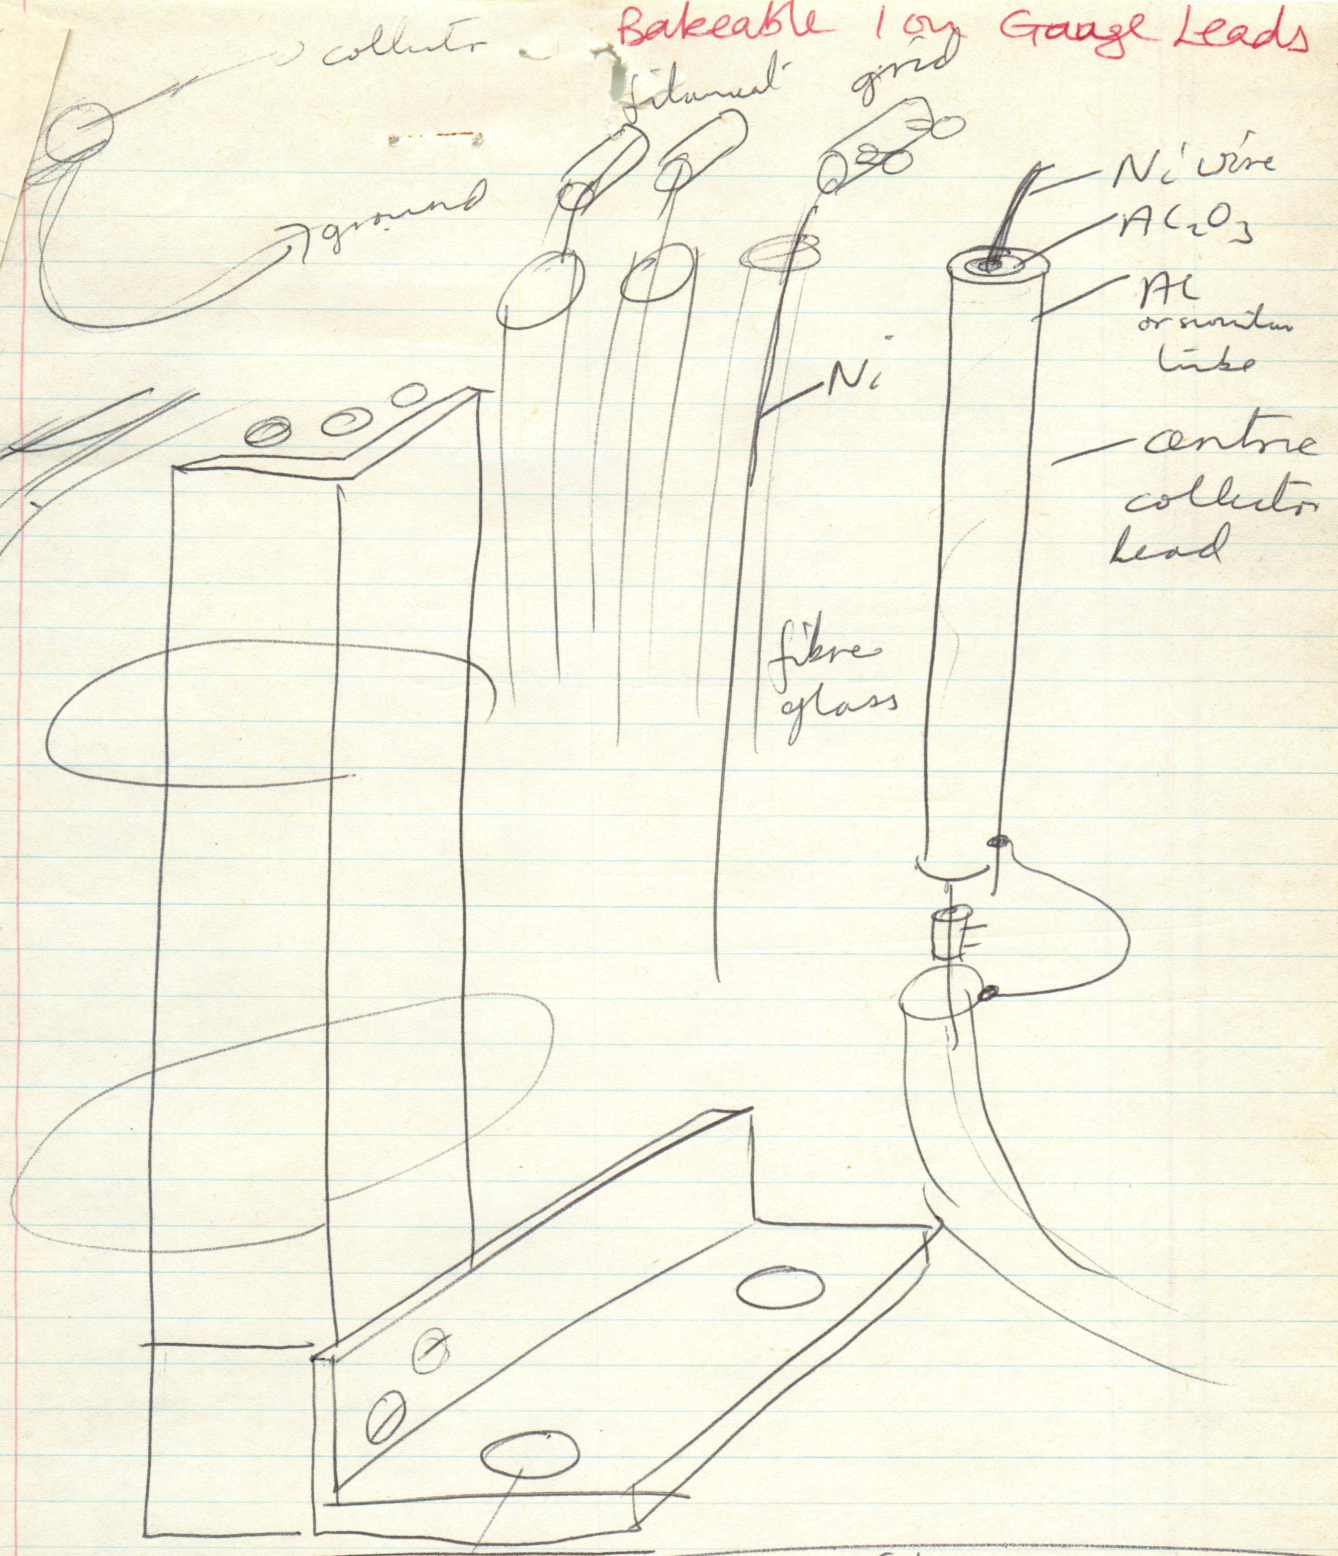 Bakeable Ion Gauge Leads
collector
filament
grid
ground
Ni wire
Al2O3
Al
or similar
tube
Ni
centre
collector
lead
fibre
glass